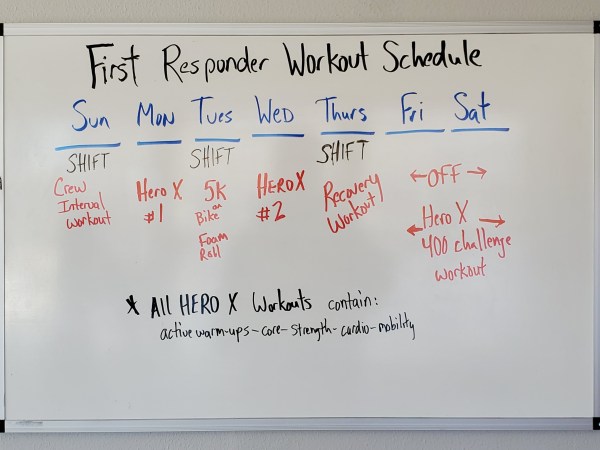 First Responder Workout Schedule
Sun Mon Tues Wed Thurs Fri Sat
SHIFT SHIFT SHIFT
Crew
Interval
Workout
Hero X
#1
5K
on
Bike
Foam
Roll
HERO X
#2
Recovery
Workout
←OFF→
← Hero X →
400 challenge
workout
* All HERO X Workouts contain:
active warm-ups – core – strength – cardio – mobility